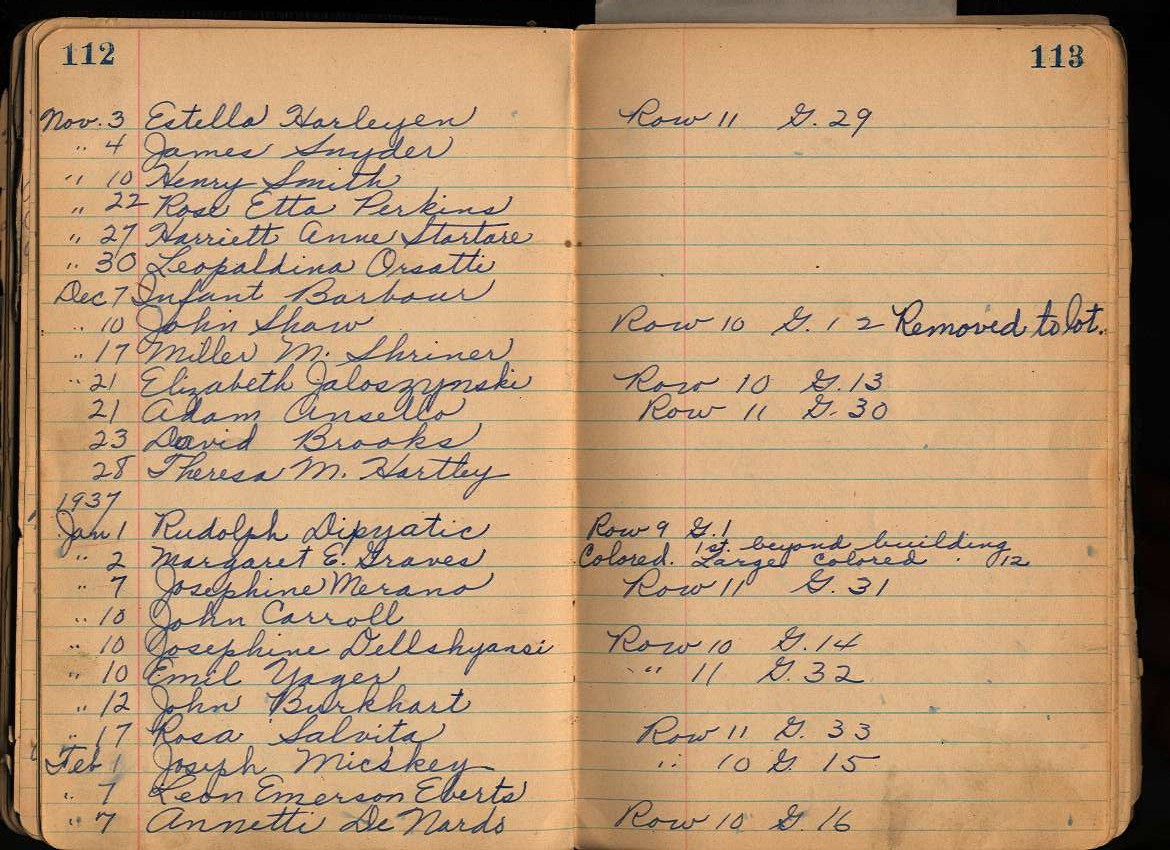 112 113
Nov. 3 Estella Harleyen Row 11 G. 29
" 4 James Snyder
" 10 Henry Smith
" 22 Rose Etta Perkins
" 27 Harriett Anne Startare
" 30 Leopaldina Orsatti
Dec 7 Infant Barbour
" 10 John Shaw Row 10 G. 12 Removed to lot.
" 17 Miller M. Shriner
" 21 Elizabeth Jaloszynski Row 10 G. 13
21 Adam Ansello Row 11 G. 30
23 David Brooks
28 Theresa M. Hartley
1937
Jan 1 Rudolph Dipyatic Row 9 G. 1
1st. beyond building
" 2 Margaret E. Graves Colored. Large Colored. 12
" 7 Josephine Merano Row 11 G. 31
" 10 John Carroll
" 10 Josephine Dellshyansi Row 10 G. 14
" 10 Emil Yager " 11 G. 32
" 12 John Burkhart
" 17 Rosa Salvita Row 11 G. 33
Feb 1 Joseph Micskey " 10 G. 15
" 7 Leon Emerson Everts
" 7 Annetti De Nardo Row 10 G. 16